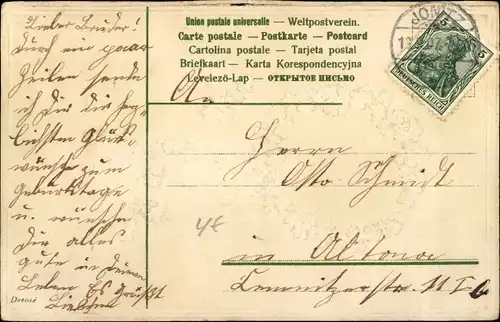 Union postale universelle – Weltpostverein.
Carte postale – Postkarte – Postcard
Cartolina postale – Tarjeta postal
Briefkaart – Karta Korespondencyjna
Levelező-Lap – ОТКРЫТОЕ ПИСЬМО
5
DEUTSCHES REICH
Lieber Bruder!
Durch ein paar
Zeilen sende
ich Dir die herz-
lichsten Glück-
wünsche zum
Geburtstage
u. wünsche
Dir alles
gute in Deinem
Leben Es grüßt
Dessoé
An
Herrn
Otto Schmidt
4€
in Altona